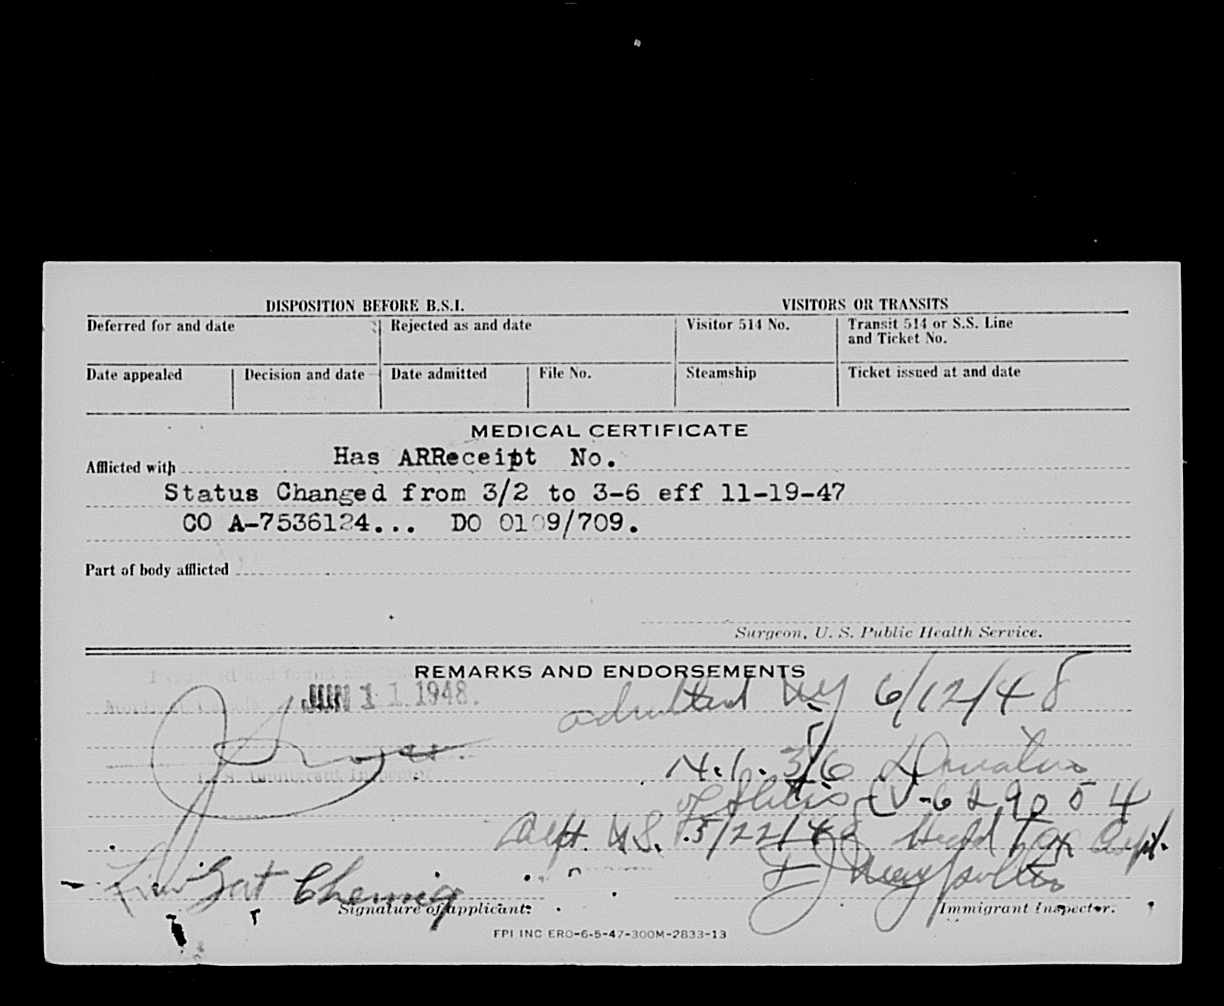 DISPOSITION BEFORE B.S.I. VISITORS OR TRANSITS
Deferred for and date Rejected as and date Visitor 514 No. Transit 514 or S.S. Line and Ticket No.
Date appealed Decision and date Date admitted File No. Steamship Ticket issued at and date
MEDICAL CERTIFICATE
Afflicted with Has ARReceipt No.
Status Changed from 3/2 to 3-6 eff 11-19-47
CO A-7536124... DO 0109/709.
Part of body afflicted
Surgeon, U. S. Public Health Service.
REMARKS AND ENDORSEMENTS
JUN 11 1948.
admitted NY 6/12/48
N.I. 3/6
V-629054
Dept. US. 5/22/48 Head Tax Dept.
Cheung
Signature of applicant: Immigrant Inspector.
FPI INC ERO-6-5-47-300M-2833-13